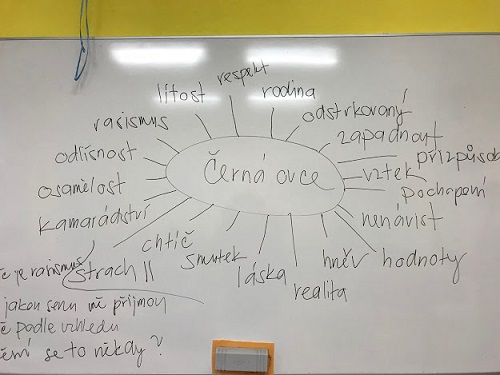 Černá ovce
respekt
rodina
odstrkovaný
zapadnout
přizpůsob
vztek
pochopení
nenávist
hodnoty
hněv
realita
láska
smutek
chtíč
strach
kamarádství
osamělost
odlišnost
rasismus
lítost
je rasismus
jakou jsem mě příjmou
podle vzhledu
se to někdy?